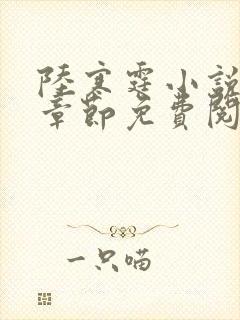 陸寒霆小說
章節免費閱
一只喵